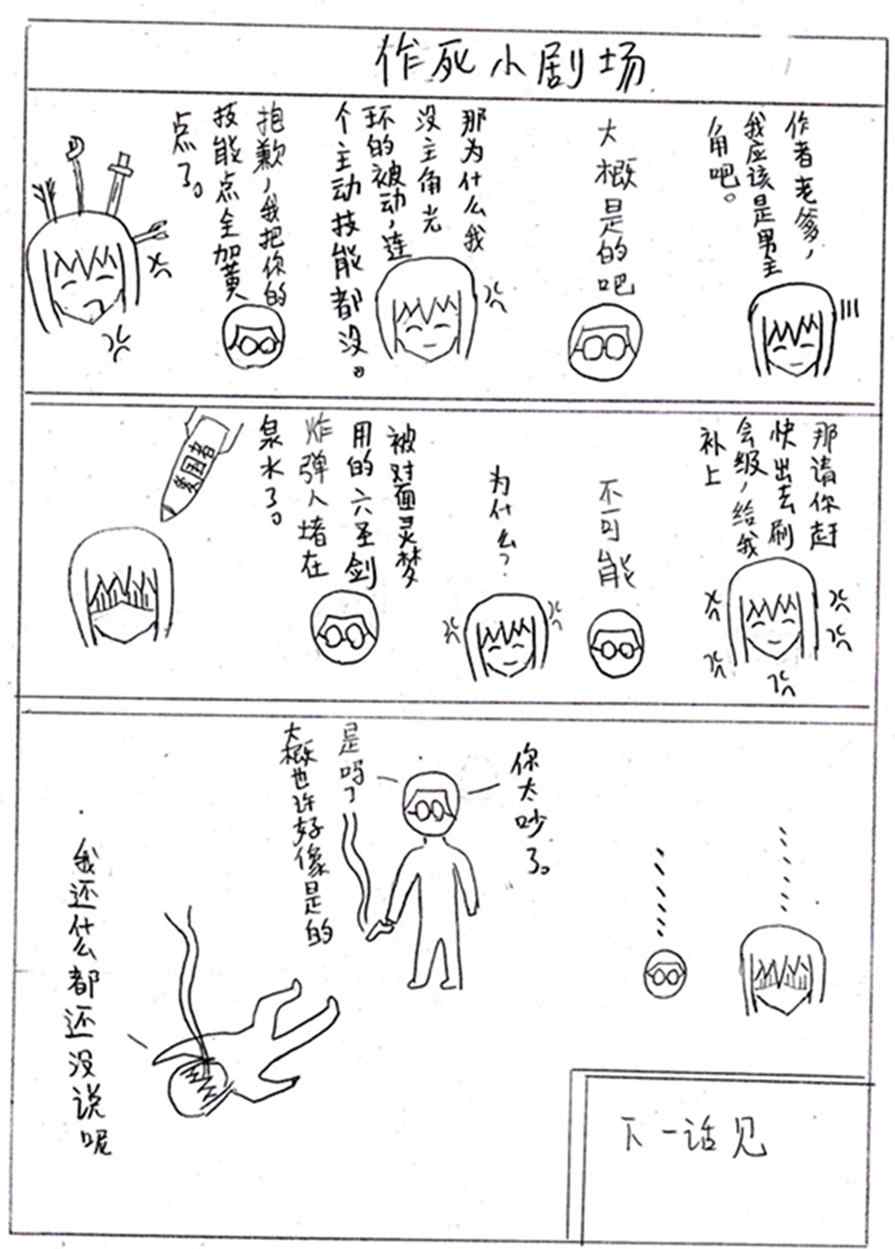 作死小剧场
作者老爹，
我应该是男主
角吧。
大概是的吧
那为什么我
没主角光
环的被动，连
个主动技能都没。
抱歉，我把你的
技能点全加黄
点了。
那请你赶
快出去刷
会级，给我
补上
不可能
为什么？
被对面灵梦
用的六圣剑
炸弹人堵在
泉水了。
爱国者
你太吵了。
是吗？
大概也许好像是的
我还什么都还没说呢
下一话见